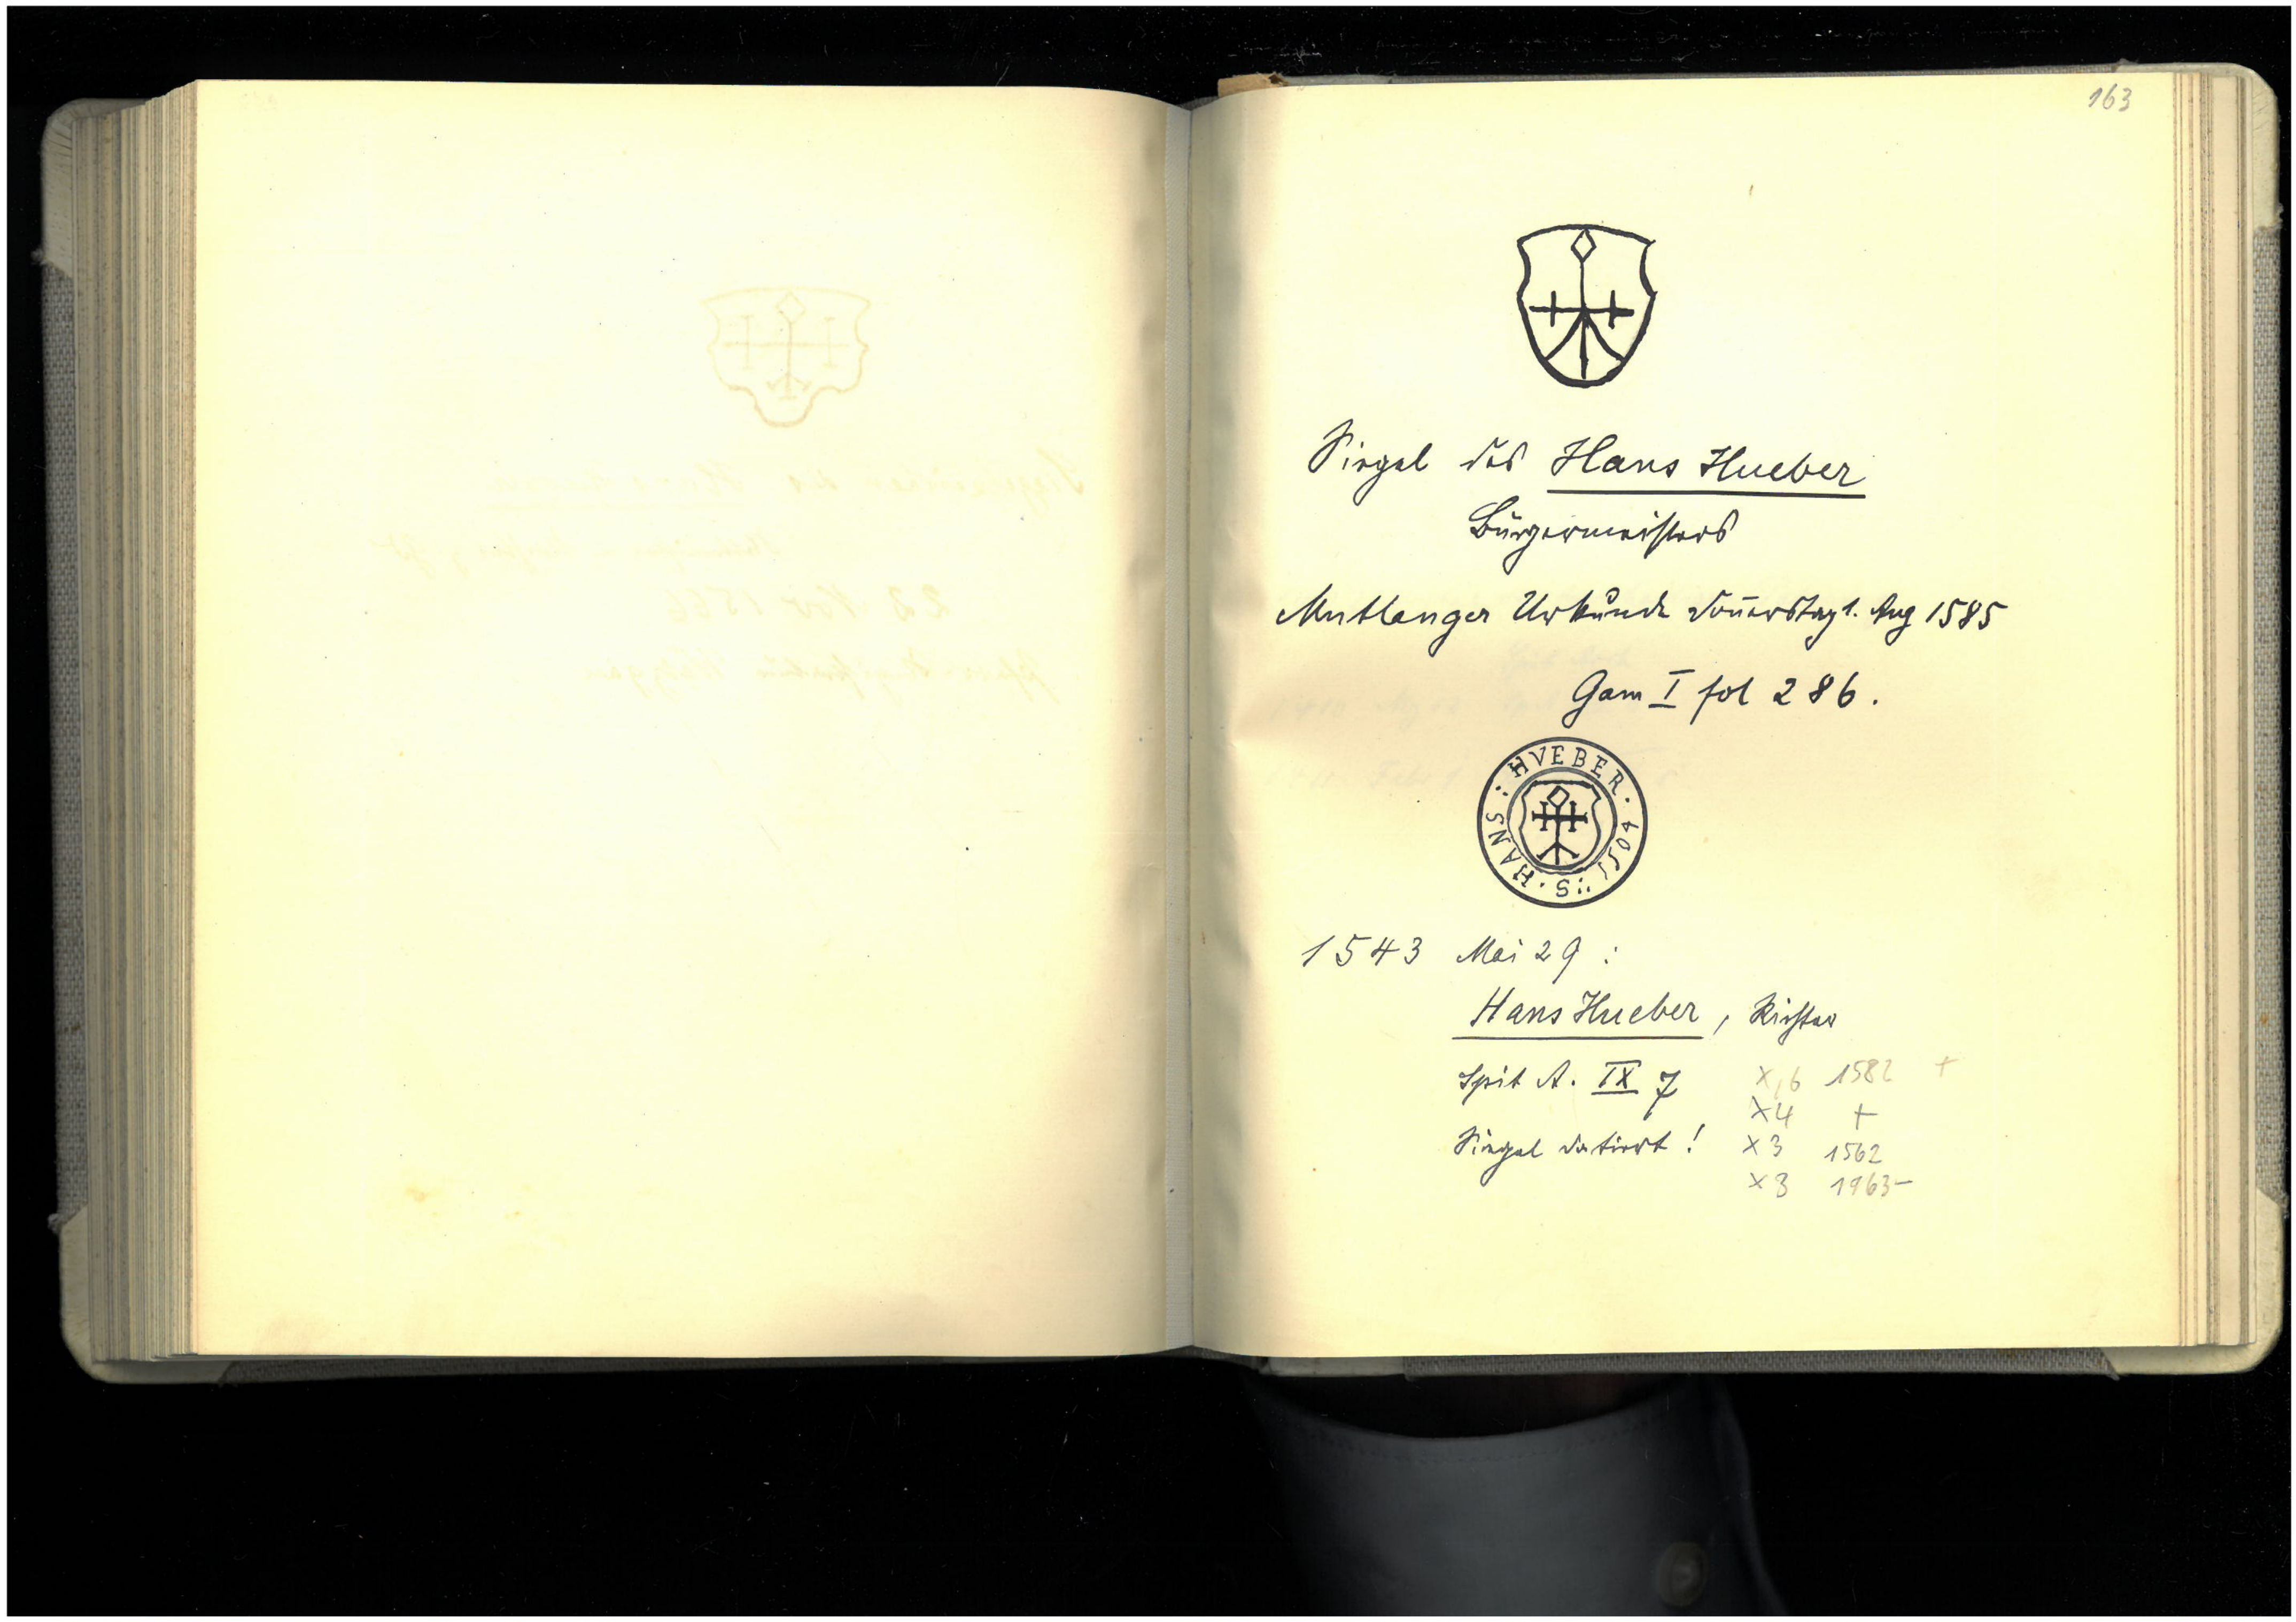 163
Siegel des Hans Hueber
Bürgermeisters
Mutlanger Urkunde Donnerstag 1. Aug 1585
Gam I fol 286.
S. HANS : HVEBER . 1504
1543 Mai 29 :
Hans Hueber, Richter
Spit A. IX 7 X,6 1582 +
X4 +
Siegel datiert ! X3 1562
X3 1963-